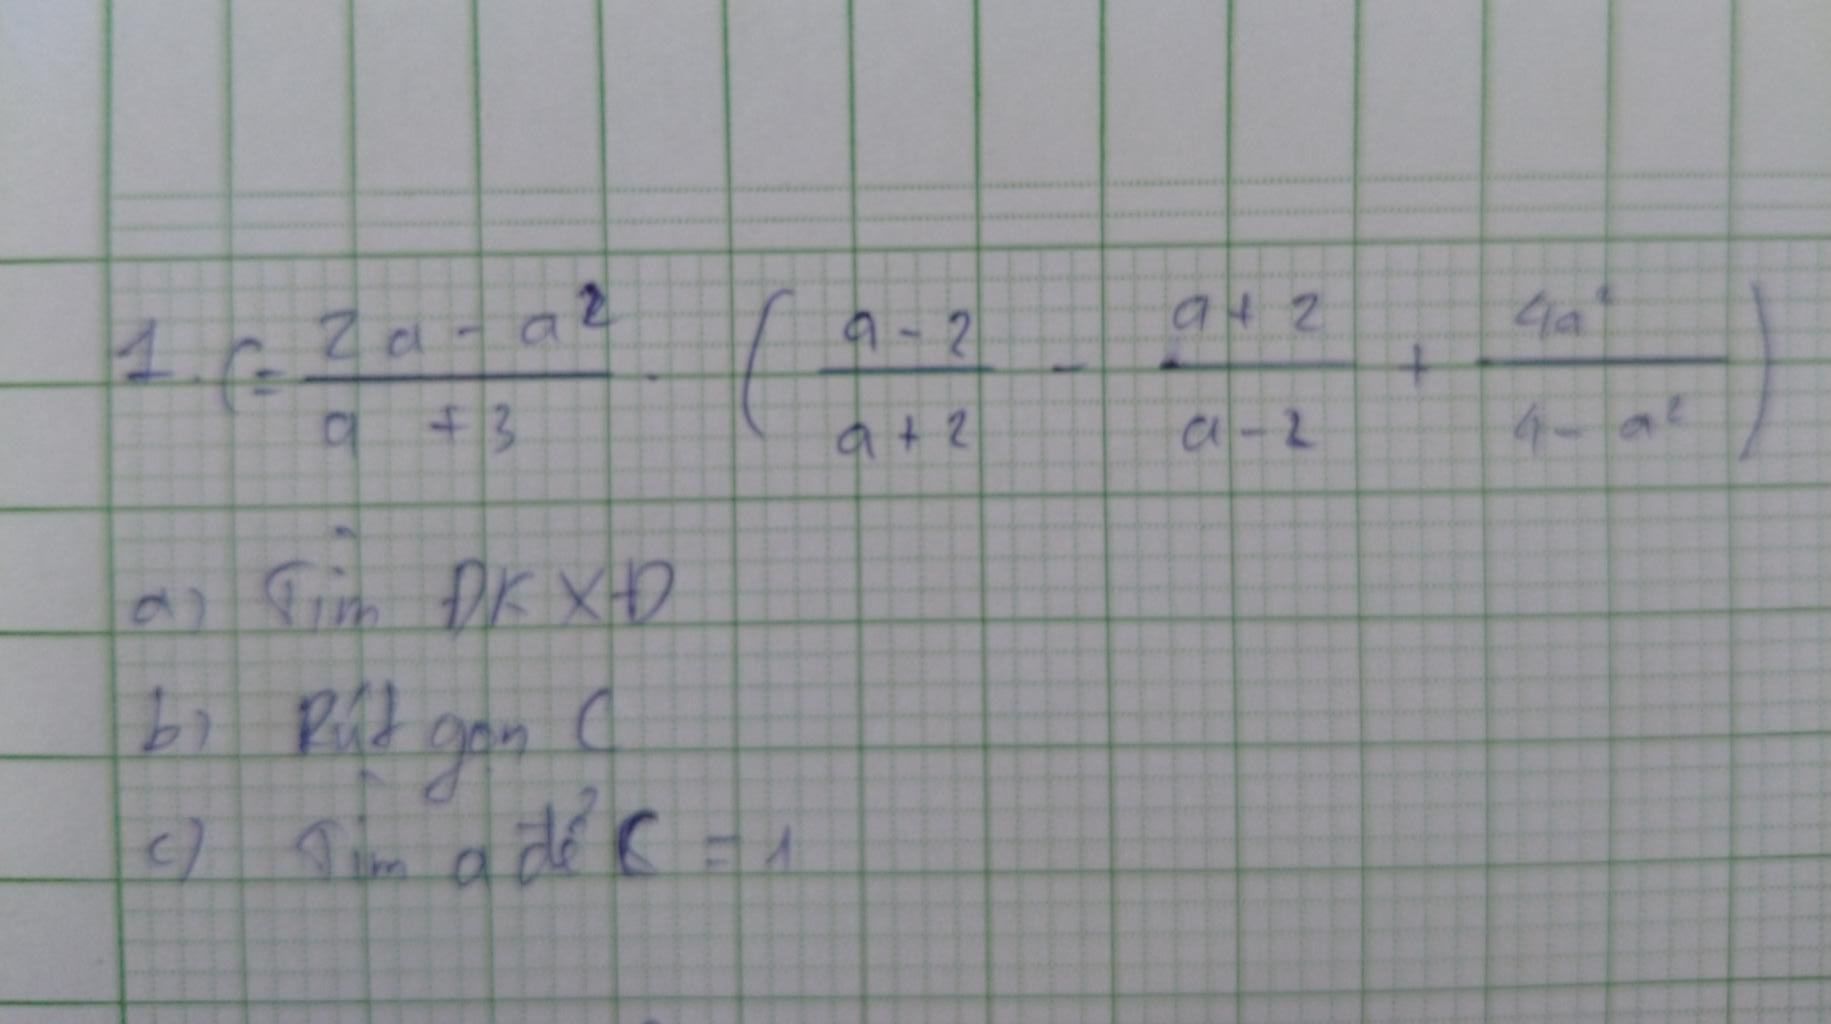 1. C = (2a - a²)/(a + 3) · ( (a - 2)/(a + 2) - (a + 2)/(a - 2) + 4a²/(4 - a²) )
a) Tìm ĐKXĐ
b) Rút gọn C
c) Tìm a để C = 1